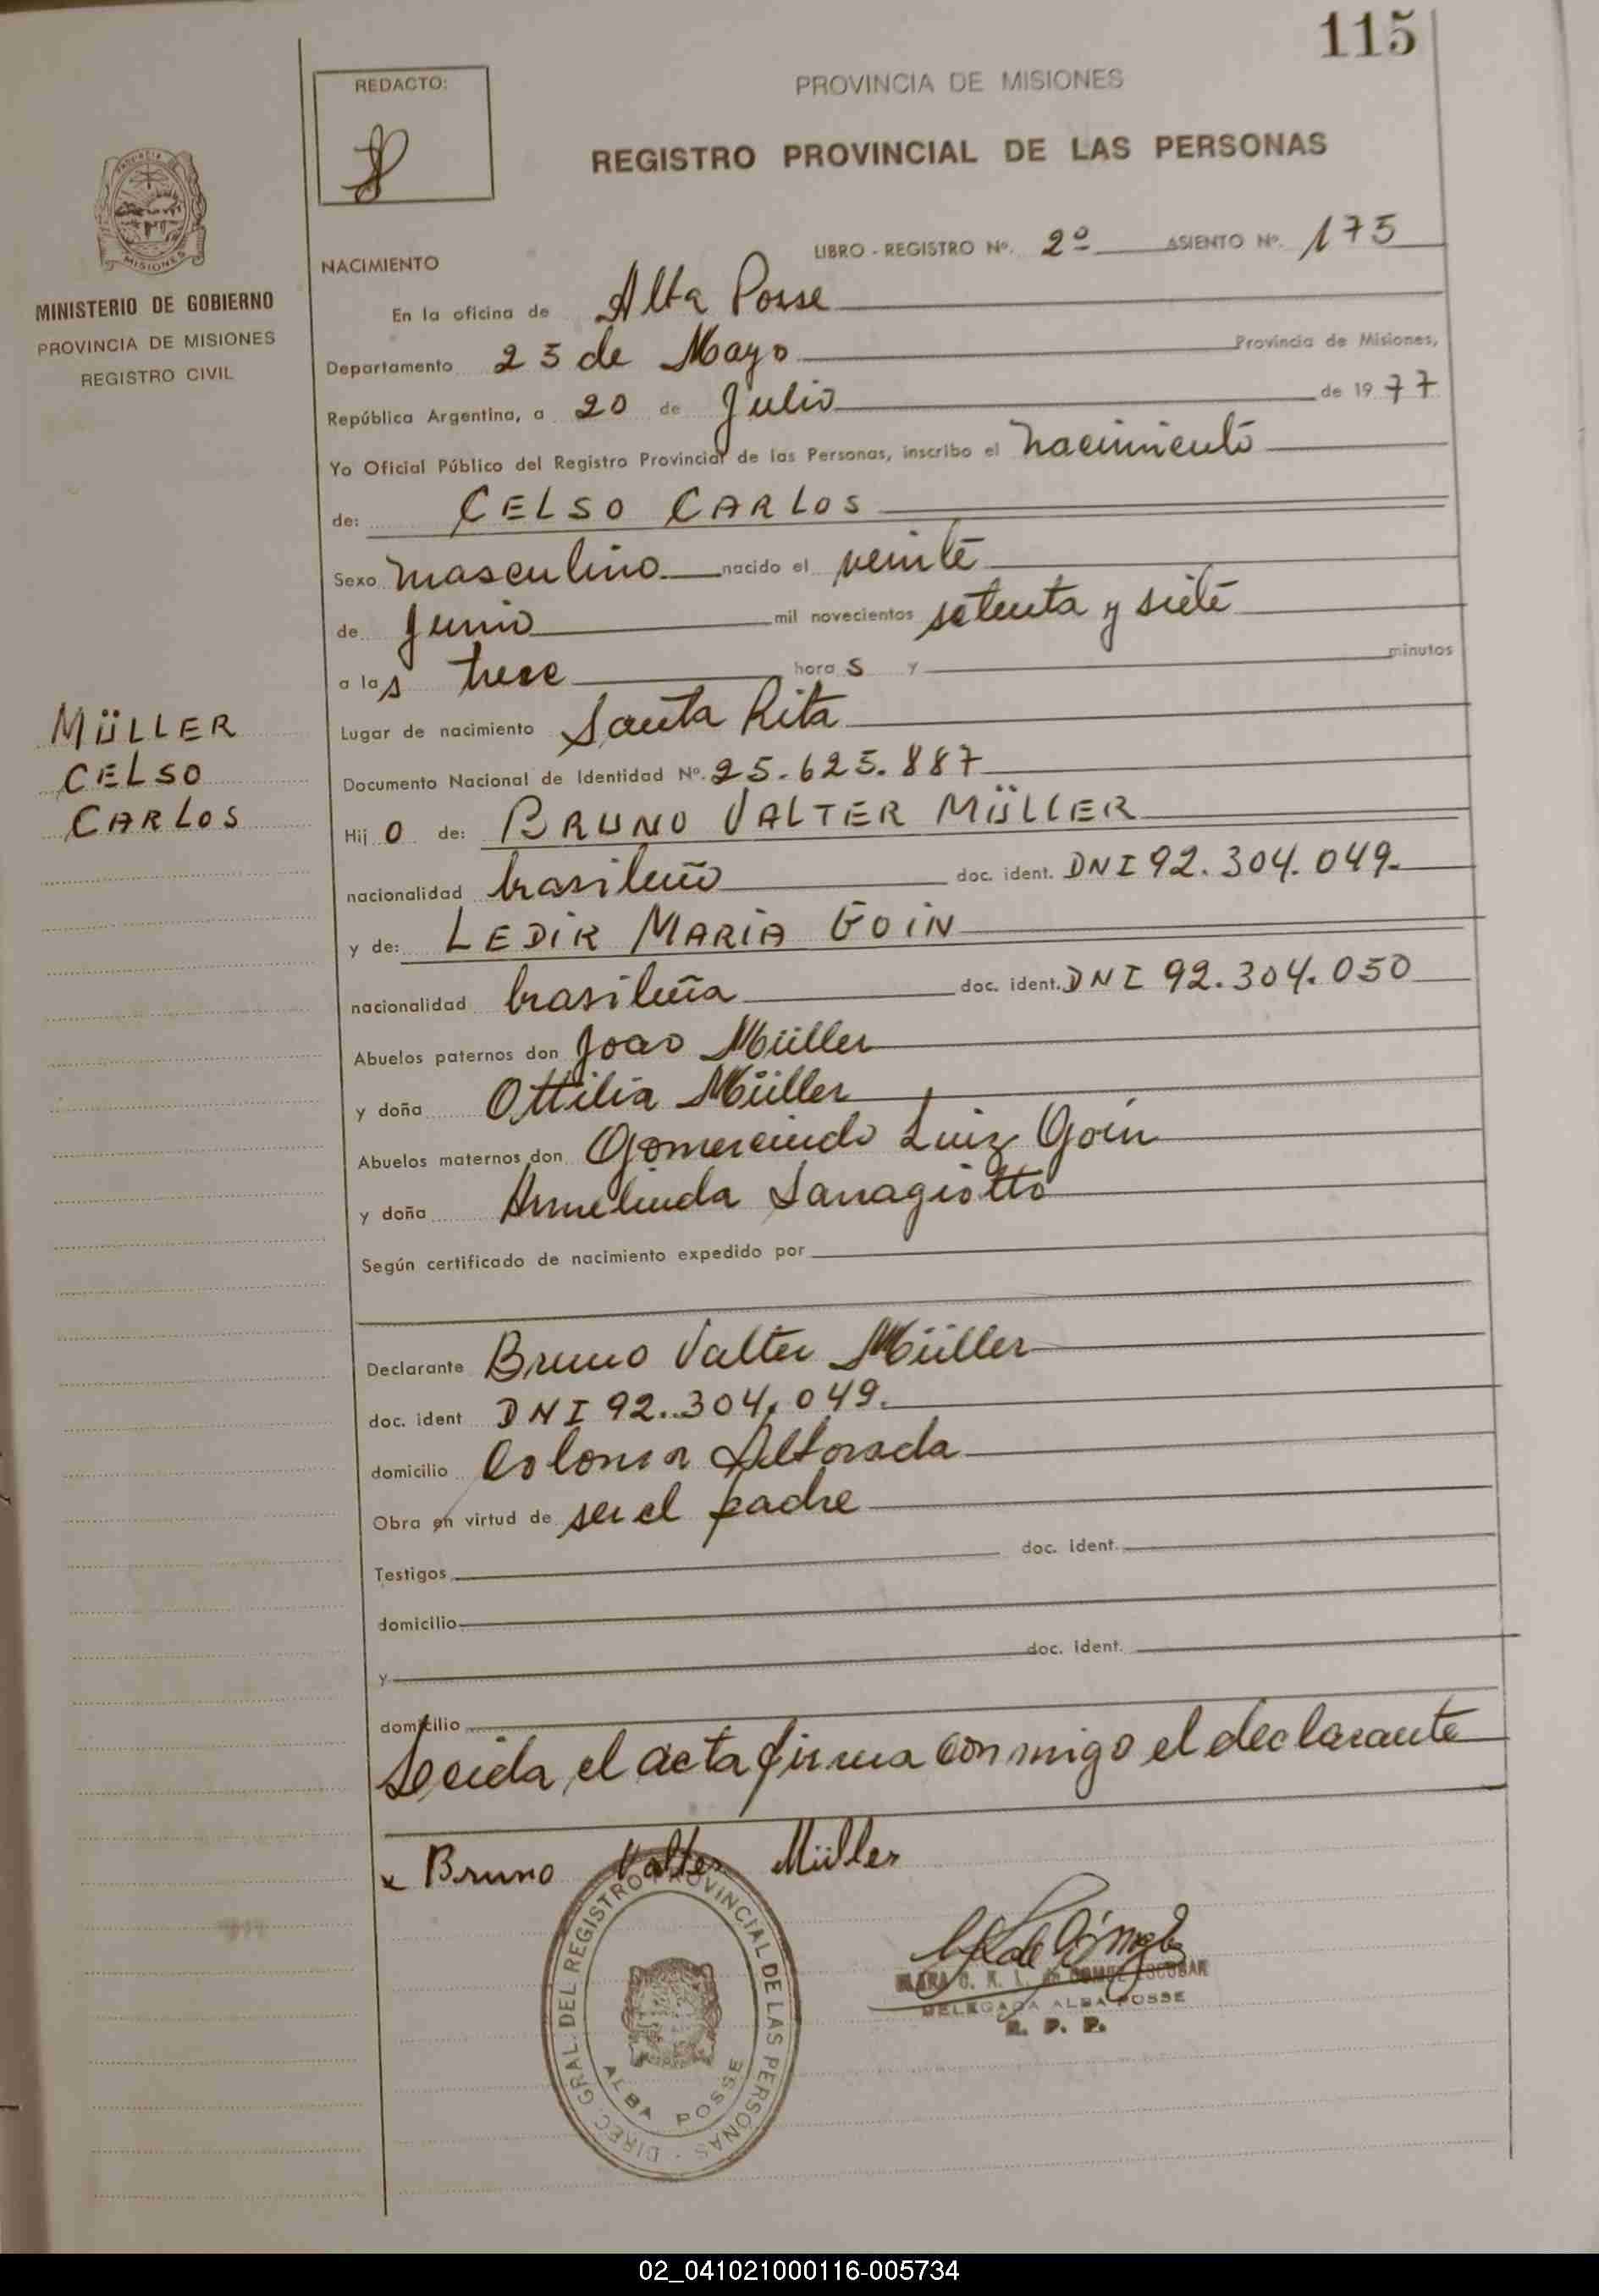 115
REDACTO:
PROVINCIA DE MISIONES
REGISTRO PROVINCIAL DE LAS PERSONAS
MISIONES
MINISTERIO DE GOBIERNO
PROVINCIA DE MISIONES
REGISTRO CIVIL
LIBRO - REGISTRO Nº. 2º ASIENTO Nº. 175
NACIMIENTO
En la oficina de Alba Posse
Departamento 25 de Mayo Provincia de Misiones,
República Argentina, a 20 de Julio de 1977
Yo Oficial Público del Registro Provincial de las Personas, inscribo el nacimiento
de: CELSO CARLOS
Sexo masculino nacido el veinte
de junio mil novecientos setenta y siete
a las trece horas y minutos
MÜLLER
CELSO
CARLOS
Lugar de nacimiento Santa Rita
Documento Nacional de Identidad Nº. 25.625.887
Hijo de: BRUNO VALTER MÜLLER
nacionalidad brasileño doc. ident. DNI 92.304.049.
y de: LEDIR MARIA GOIN
nacionalidad brasileña doc. ident. DNI 92.304.050
Abuelos paternos don Joao Müller
y doña Ottilia Müller
Abuelos maternos don Gomercindo Luiz Goin
y doña Armelinda
Según certificado de nacimiento expedido por
Declarante Bruno Valter Müller
doc. ident DNI 92.304.049.
domicilio Colonia Alborada
Obra en virtud de ser el padre
Testigos doc. ident.
domicilio
y doc. ident.
domicilio
Leida el acta firma conmigo el declarante
x Bruno Valter Müller
DIREC. GRAL. DEL REGISTRO PROVINCIAL DE LAS PERSONAS -
ALBA POSSE
DE GOMEZ ESCOBAR
DELEGADA ALBA POSSE
R. P. P.
02_041021000116-005734